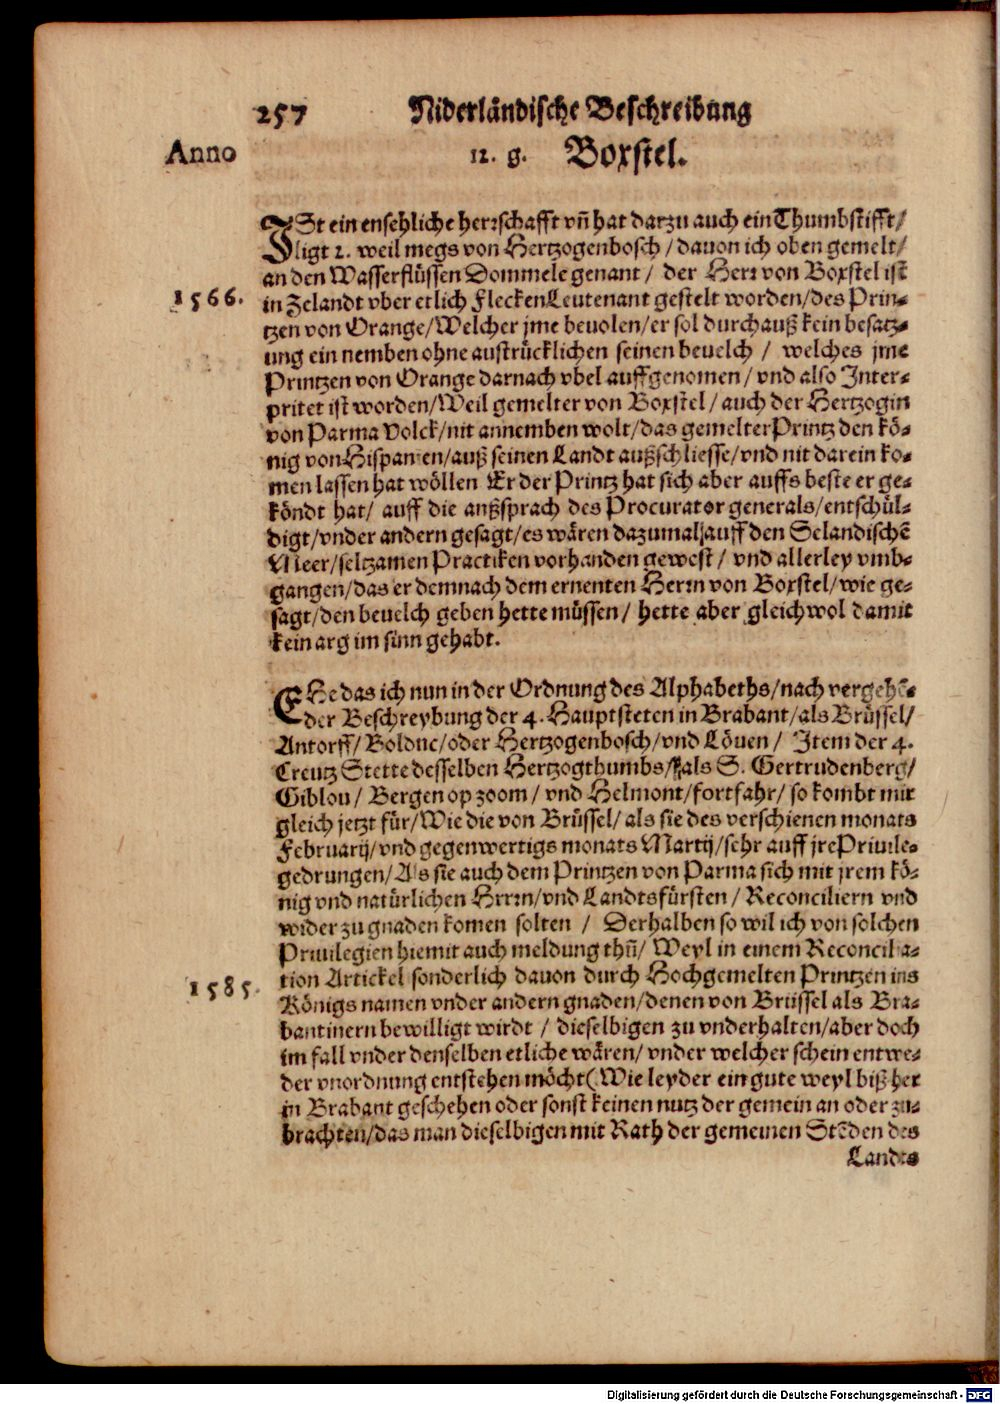 257 Niderländische Beschreibung
Anno 12. g. Boxstel.
ISt ein ensehliche herrschafft vñ hat darzu auch ein Thumbstifft/
ligt 2. weil wegs von Hertzogenbosch/dauon ich oben gemelt/
an den Wasserflüssen Dommele genant/ der Herr von Boxstel ist
1566. in Zelandt vber etlich Flecken Leutenant gestelt worden/des Prin-
tzen von Orange/Welcher jme beuolen/er sol durchauß kein besatz-
ung ein nemben ohne austrücklichen seinen beuelch / welches jme
Printzen von Orange darnach vbel auffgenomen/vnd also Inter-
pritet ist worden/Weil gemelter von Boxstel/auch der Hertzogin
von Parma Volck/nit annemben wolt/das gemelter Printz den kö-
nig von Hispanien/auß seinen Landt außschliesse/vnd nit darein ko-
men lassen hat wöllen Er der Printz hat sich aber auffs beste er ge-
köndt hat/ auff die anßsprach des Procurator generals/entschül-
digt/vnder andern gesagt/es wären dazumal auff den Selandischē
Meer/seltzamen Practiken vorhanden gewest/ vnd allerley vmb-
gangen/das er demnach dem ernenten Herrn von Boxstel/wie ge-
sagt/den beuelch geben hette müssen/ hette aber gleichwol damit
kein arg im sinn gehabt.
EHe das ich nun in der Ordnung des Alphabeths/nach vergehē-
der Beschreybung der 4. Hauptsteten in Brabant/als Brüssel/
Antorff/Bolduc/oder Hertzogenbosch/vnd Löuen/ Item der 4.
Creutz Stette desselben Hertzogthumbs/als S. Gertrudenberg/
Giblou/ Bergen op zoom/ vnd Helmont/fortfahr/ so kombt mir
gleich jetzt für/Wie die von Brüssel/als sie des verschienen monats
Februarij/vnd gegenwertigs monats Martij/sehr auff jre Priuile-
gedrungen/Als sie auch dem Printzen von Parma sich mit jrem kö-
nig vnd natürlichen Herrn/vnd Landtsfürsten/Reconciliern vnd
wider zu gnaden komen solten / Derhalben so wil ich von solchen
Priuilegien hiemit auch meldung thũ/ Weyl in einem Reconcilia-
tion Artickel sonderlich dauon durch Hochgemelten Printzen ins
1585. Königs namen vnder andern gnaden/denen von Brüssel als Bra-
bantinern bewilligt wirdt / dieselbigen zu vnderhalten/aber doch
im fall vnder denselben etliche wären/vnder welcher schein entwe-
der vnordnung entstehen möcht(Wie leyder ein gute weyl biß her
in Brabant geschehen oder sonst keinen nutz der gemein an oder zu-
brachten/das man dieselbigen mit Rath der gemeinen Stēden des
Landes
Digitalisierung gefördert durch die Deutsche Forschungsgemeinschaft - DFG